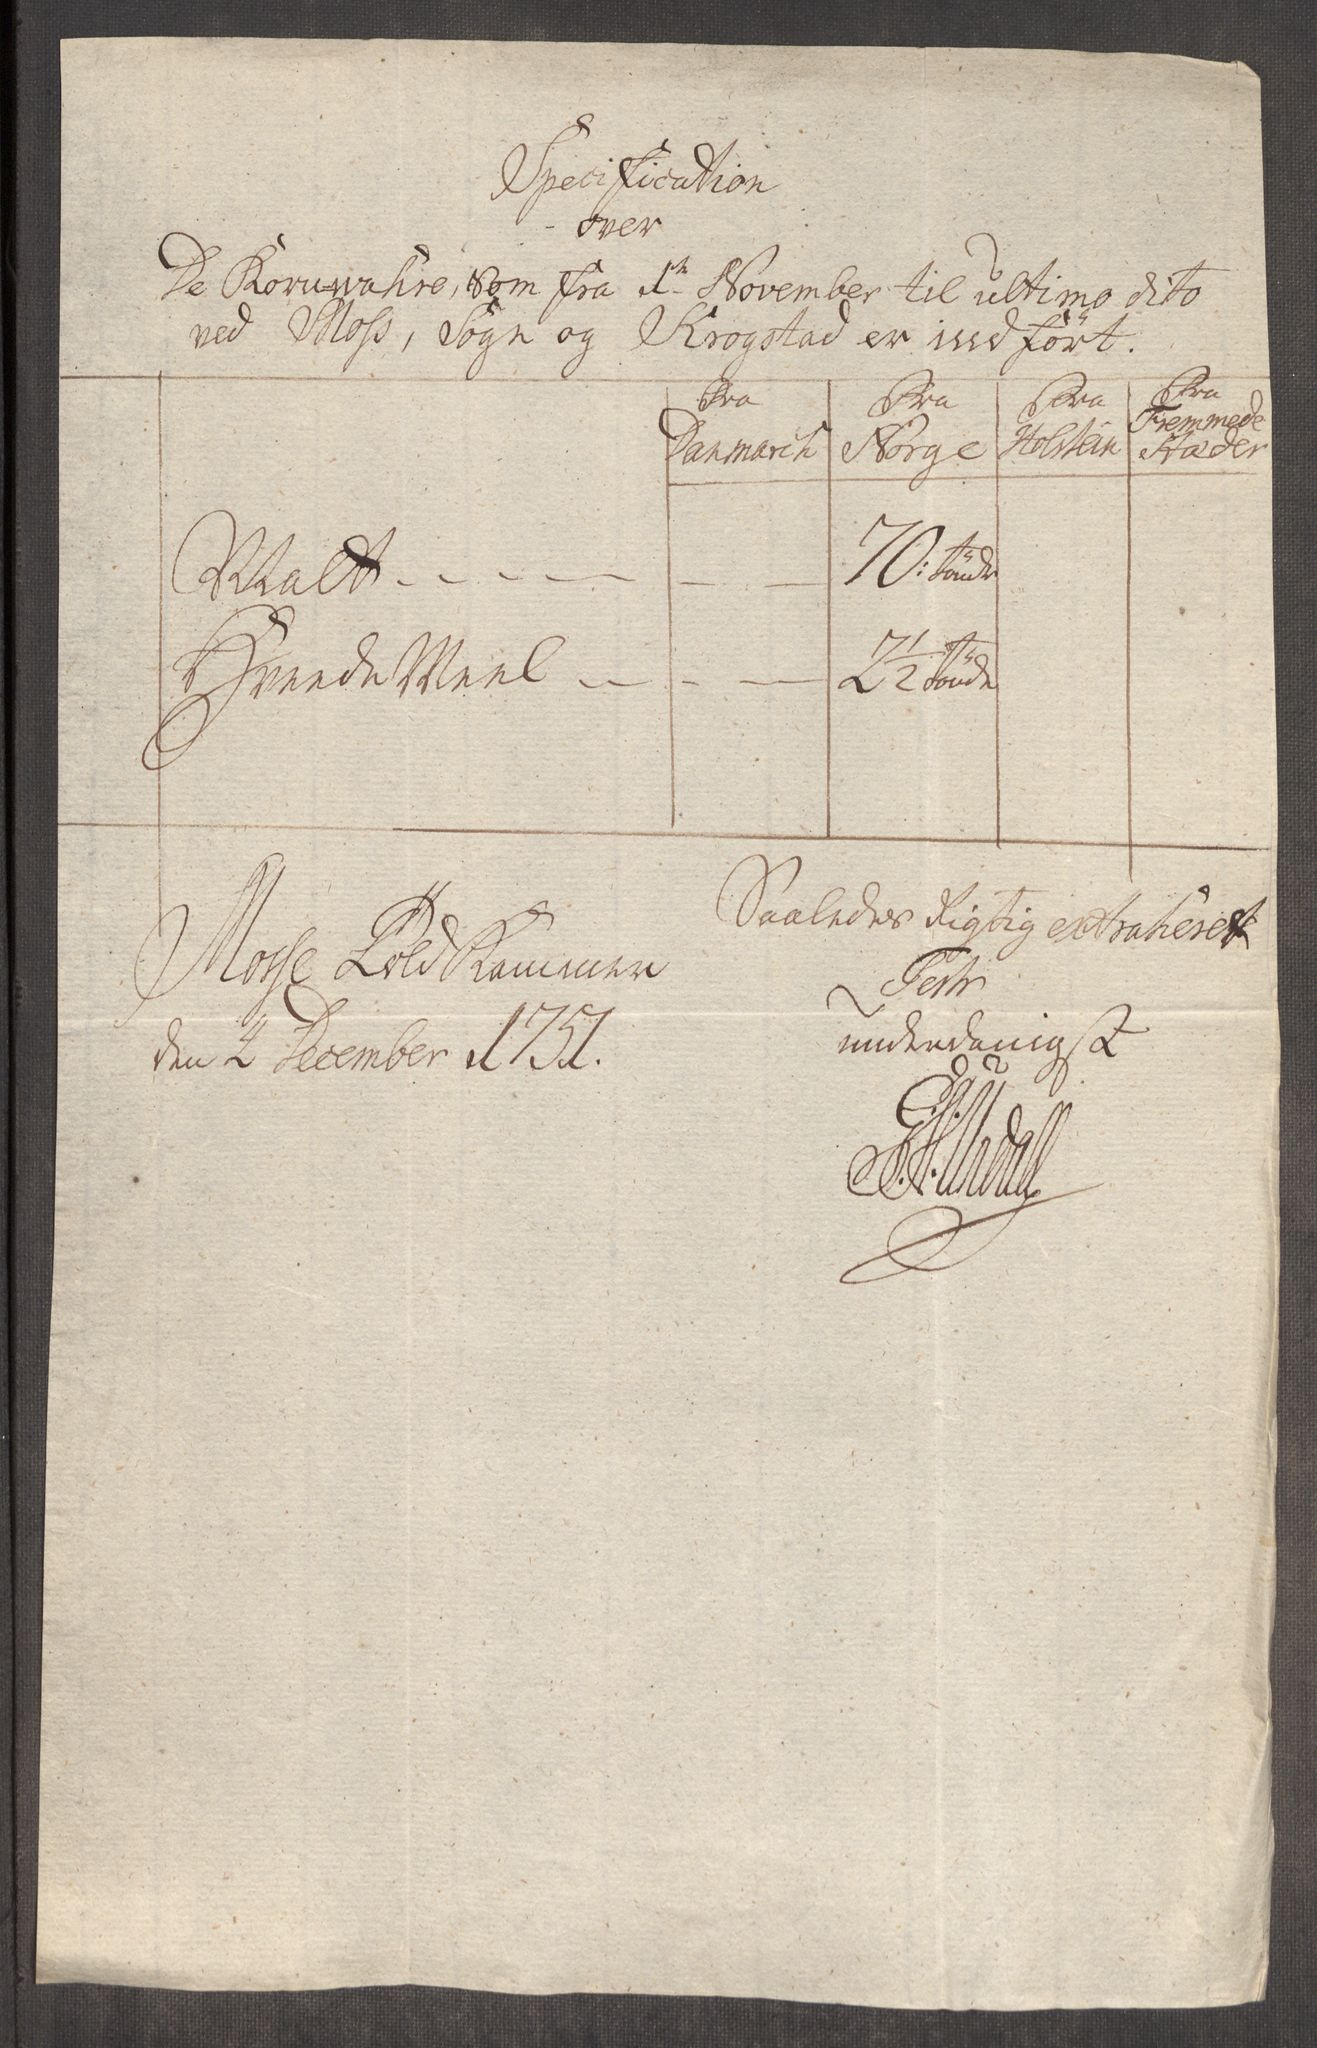 Specification
over
De Kornwahre, som fra 1te November til ultimo dito
ved Moss, Sogn og Krogstad er indført.
Fra Danmarch
Fra Norge
Fra Holstein
Fra Fremmede Stæder
Malt - - - - - - - 70: tønde
Hveede Meel - - - - - 2 1/2 tønde
Mosse Told Kammer
den 4 December 1751.
Saaledes Rigtig extraheret
Test
underdanigst